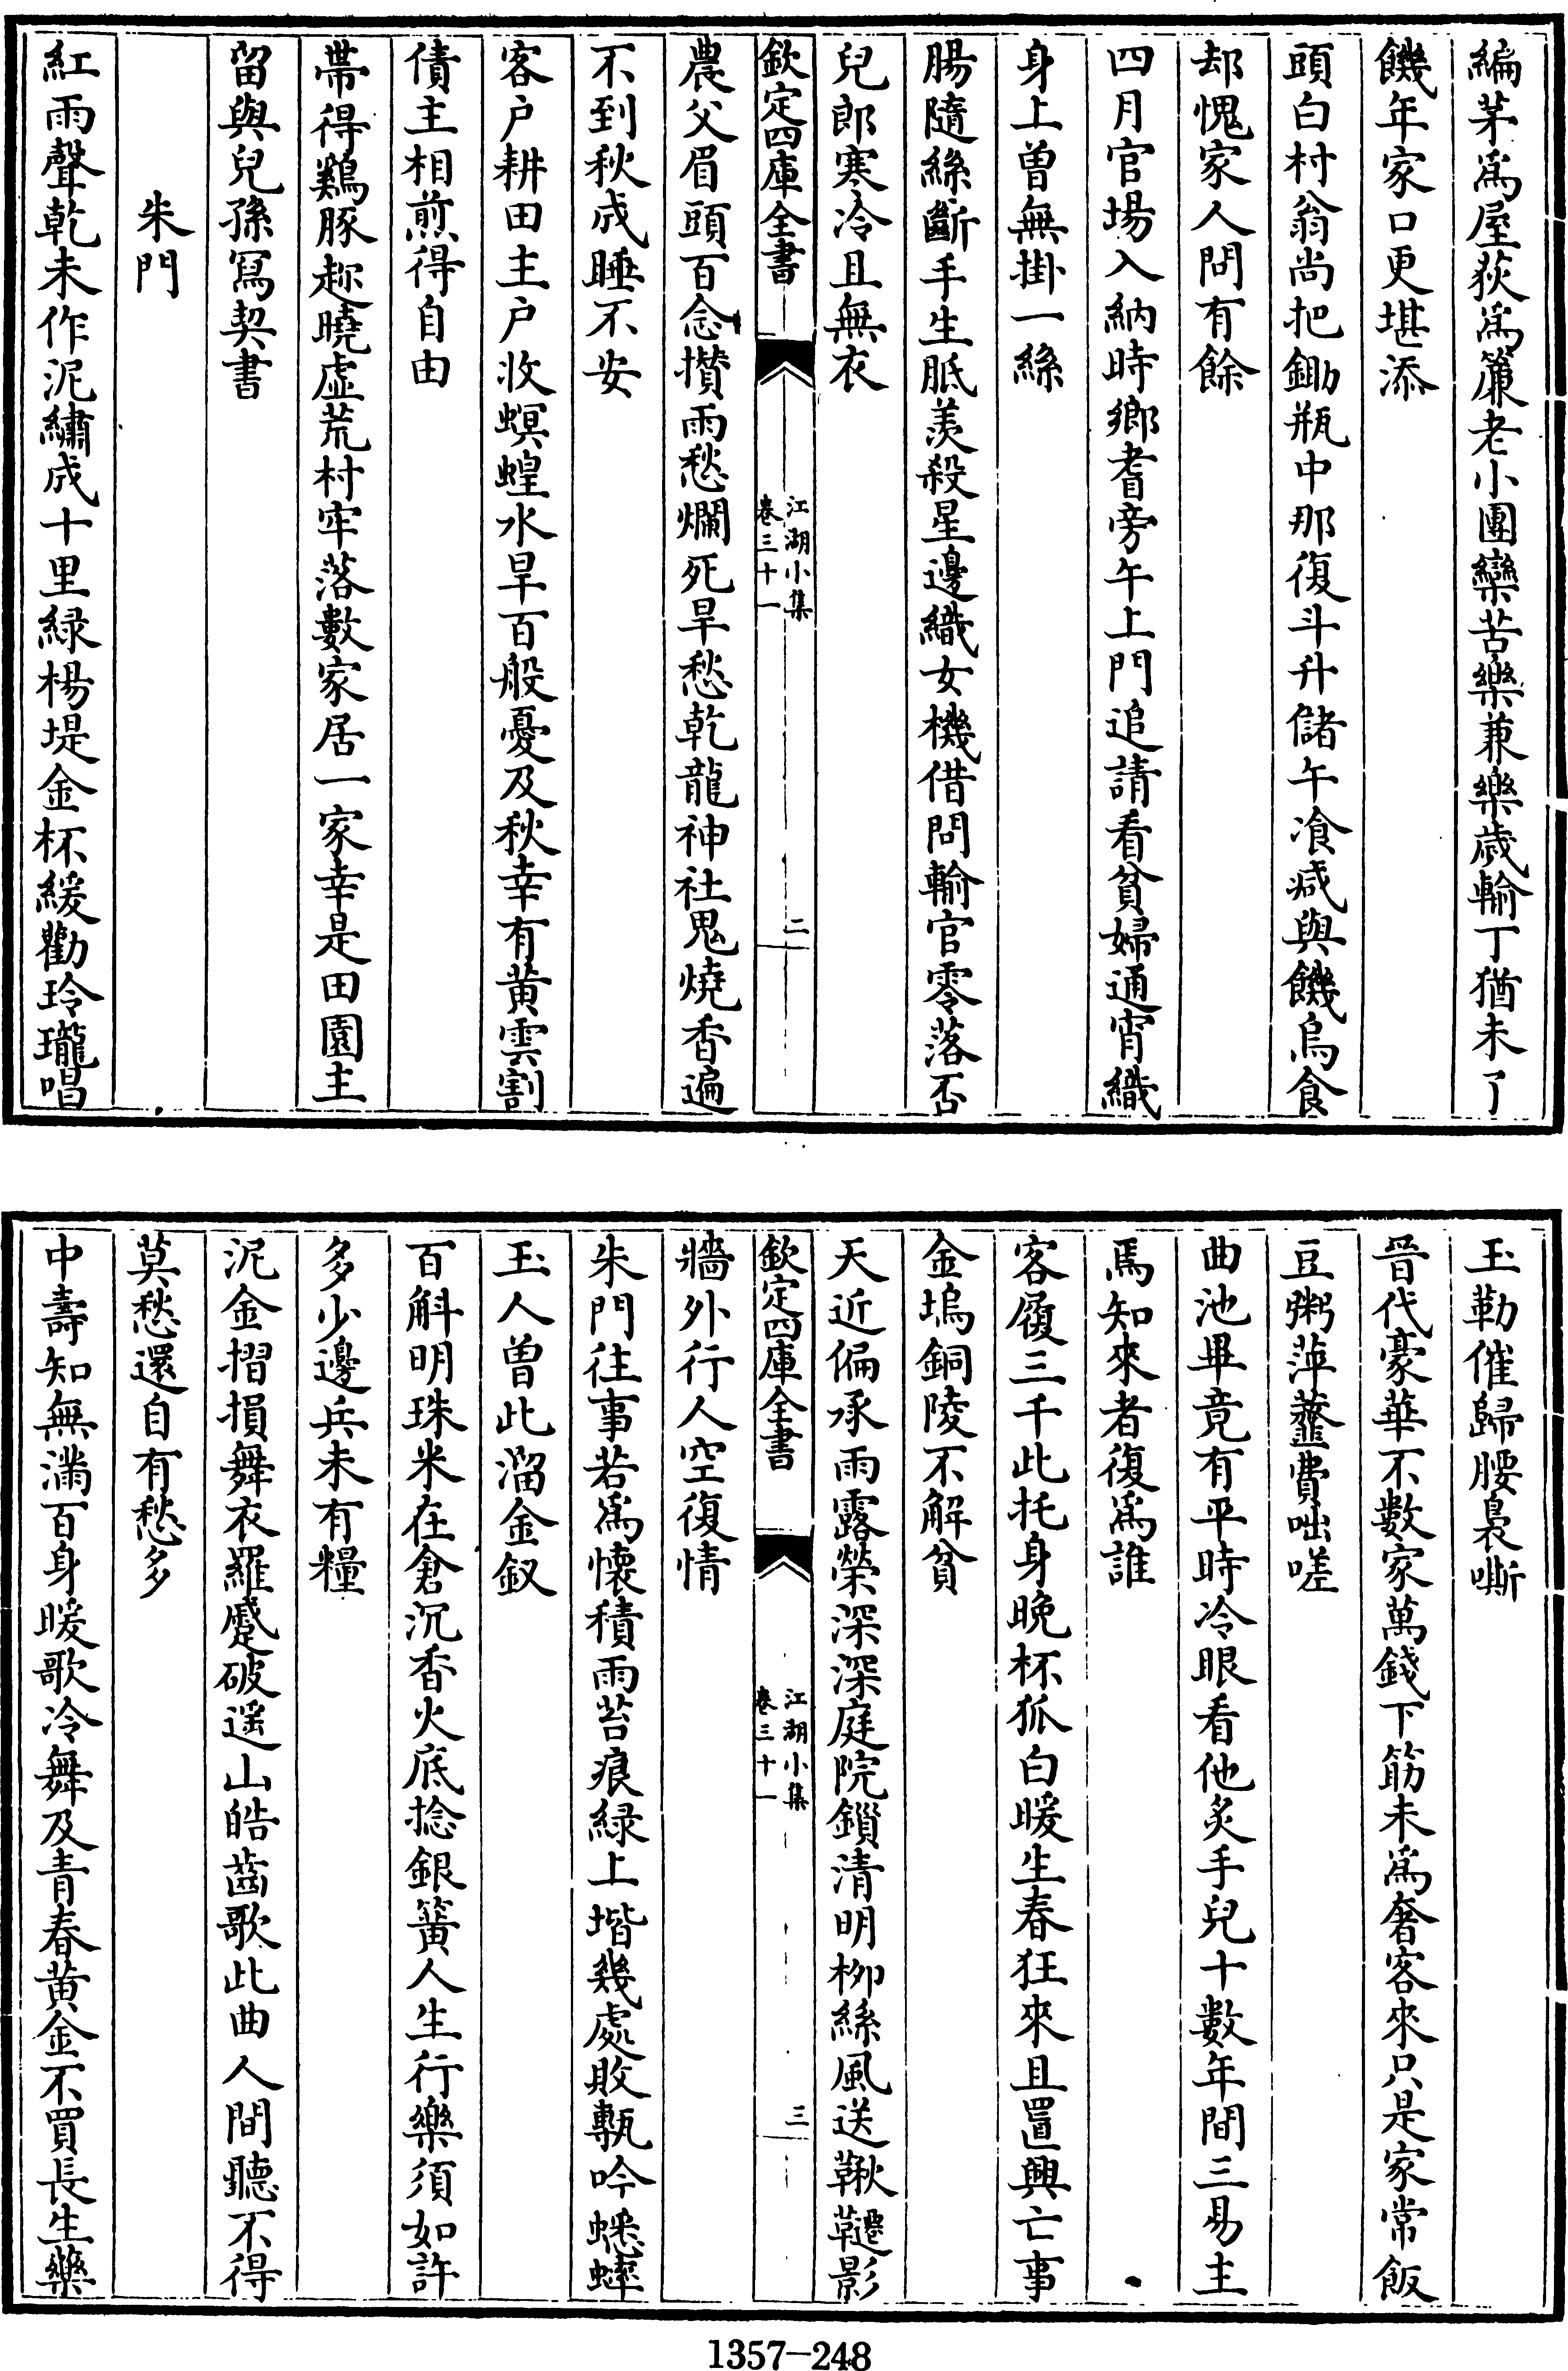 編茅爲屋荻爲簾老小團欒苦樂兼樂歲輸丁猶未了
饑年家口更堪添
頭白村翁尚把鋤瓶中那復斗升儲午飡減與饑烏食
却愧家人問有餘
四月官場入納時鄉耆旁午上門追請看貧婦通宵織
身上曽無掛一絲
腸隨絲斷手生胝羨殺星邊織女機借問輸官零落否
兒郎寒冷且無衣
欽定四庫全書
江湖小集
卷三十一
二
農父眉頭百念攅雨愁爛死旱愁乾龍神社鬼燒香遍
不到秋成睡不安
客户耕田主户收螟蝗水旱百般憂及秋幸有黄雲割
債主相煎得自由
帶得鷄豚趂曉虛荒村牢落數家居一家幸是田園主
留與兒孫冩契書
朱門
紅雨聲乾未作泥繡成十里緑楊堤金杯緩勸玲瓏唱
玉勒催歸腰裊嘶
晉代豪華不數家萬錢下筯未爲奢客來只是家常飯
豆粥蓱虀費咄嗟
曲池畢竟有平時冷眼看他炙手兒十數年間三易主
焉知來者復爲誰
客履三千此托身晩杯狐白暖生春狂來且置興亡事
金塢銅陵不解貧
天近偏承雨露榮深深庭院鎖清明栁絲風送鞦韆影
欽定四庫全書
江湖小集
卷三十一
三
牆外行人空復情
朱門往事若爲懐積雨苔痕緑上堦幾處敗甎吟蟋蟀
玉人曽此溜金釵
百斛明珠米在倉沉香火底捻銀簧人生行樂須如許
多少邊兵未有糧
泥金摺損舞衣羅蹙破遥山皓齒歌此曲人間聽不得
莫愁還自有愁多
中壽知無滿百身暖歌冷舞及青春黄金不買長生藥
1357-248